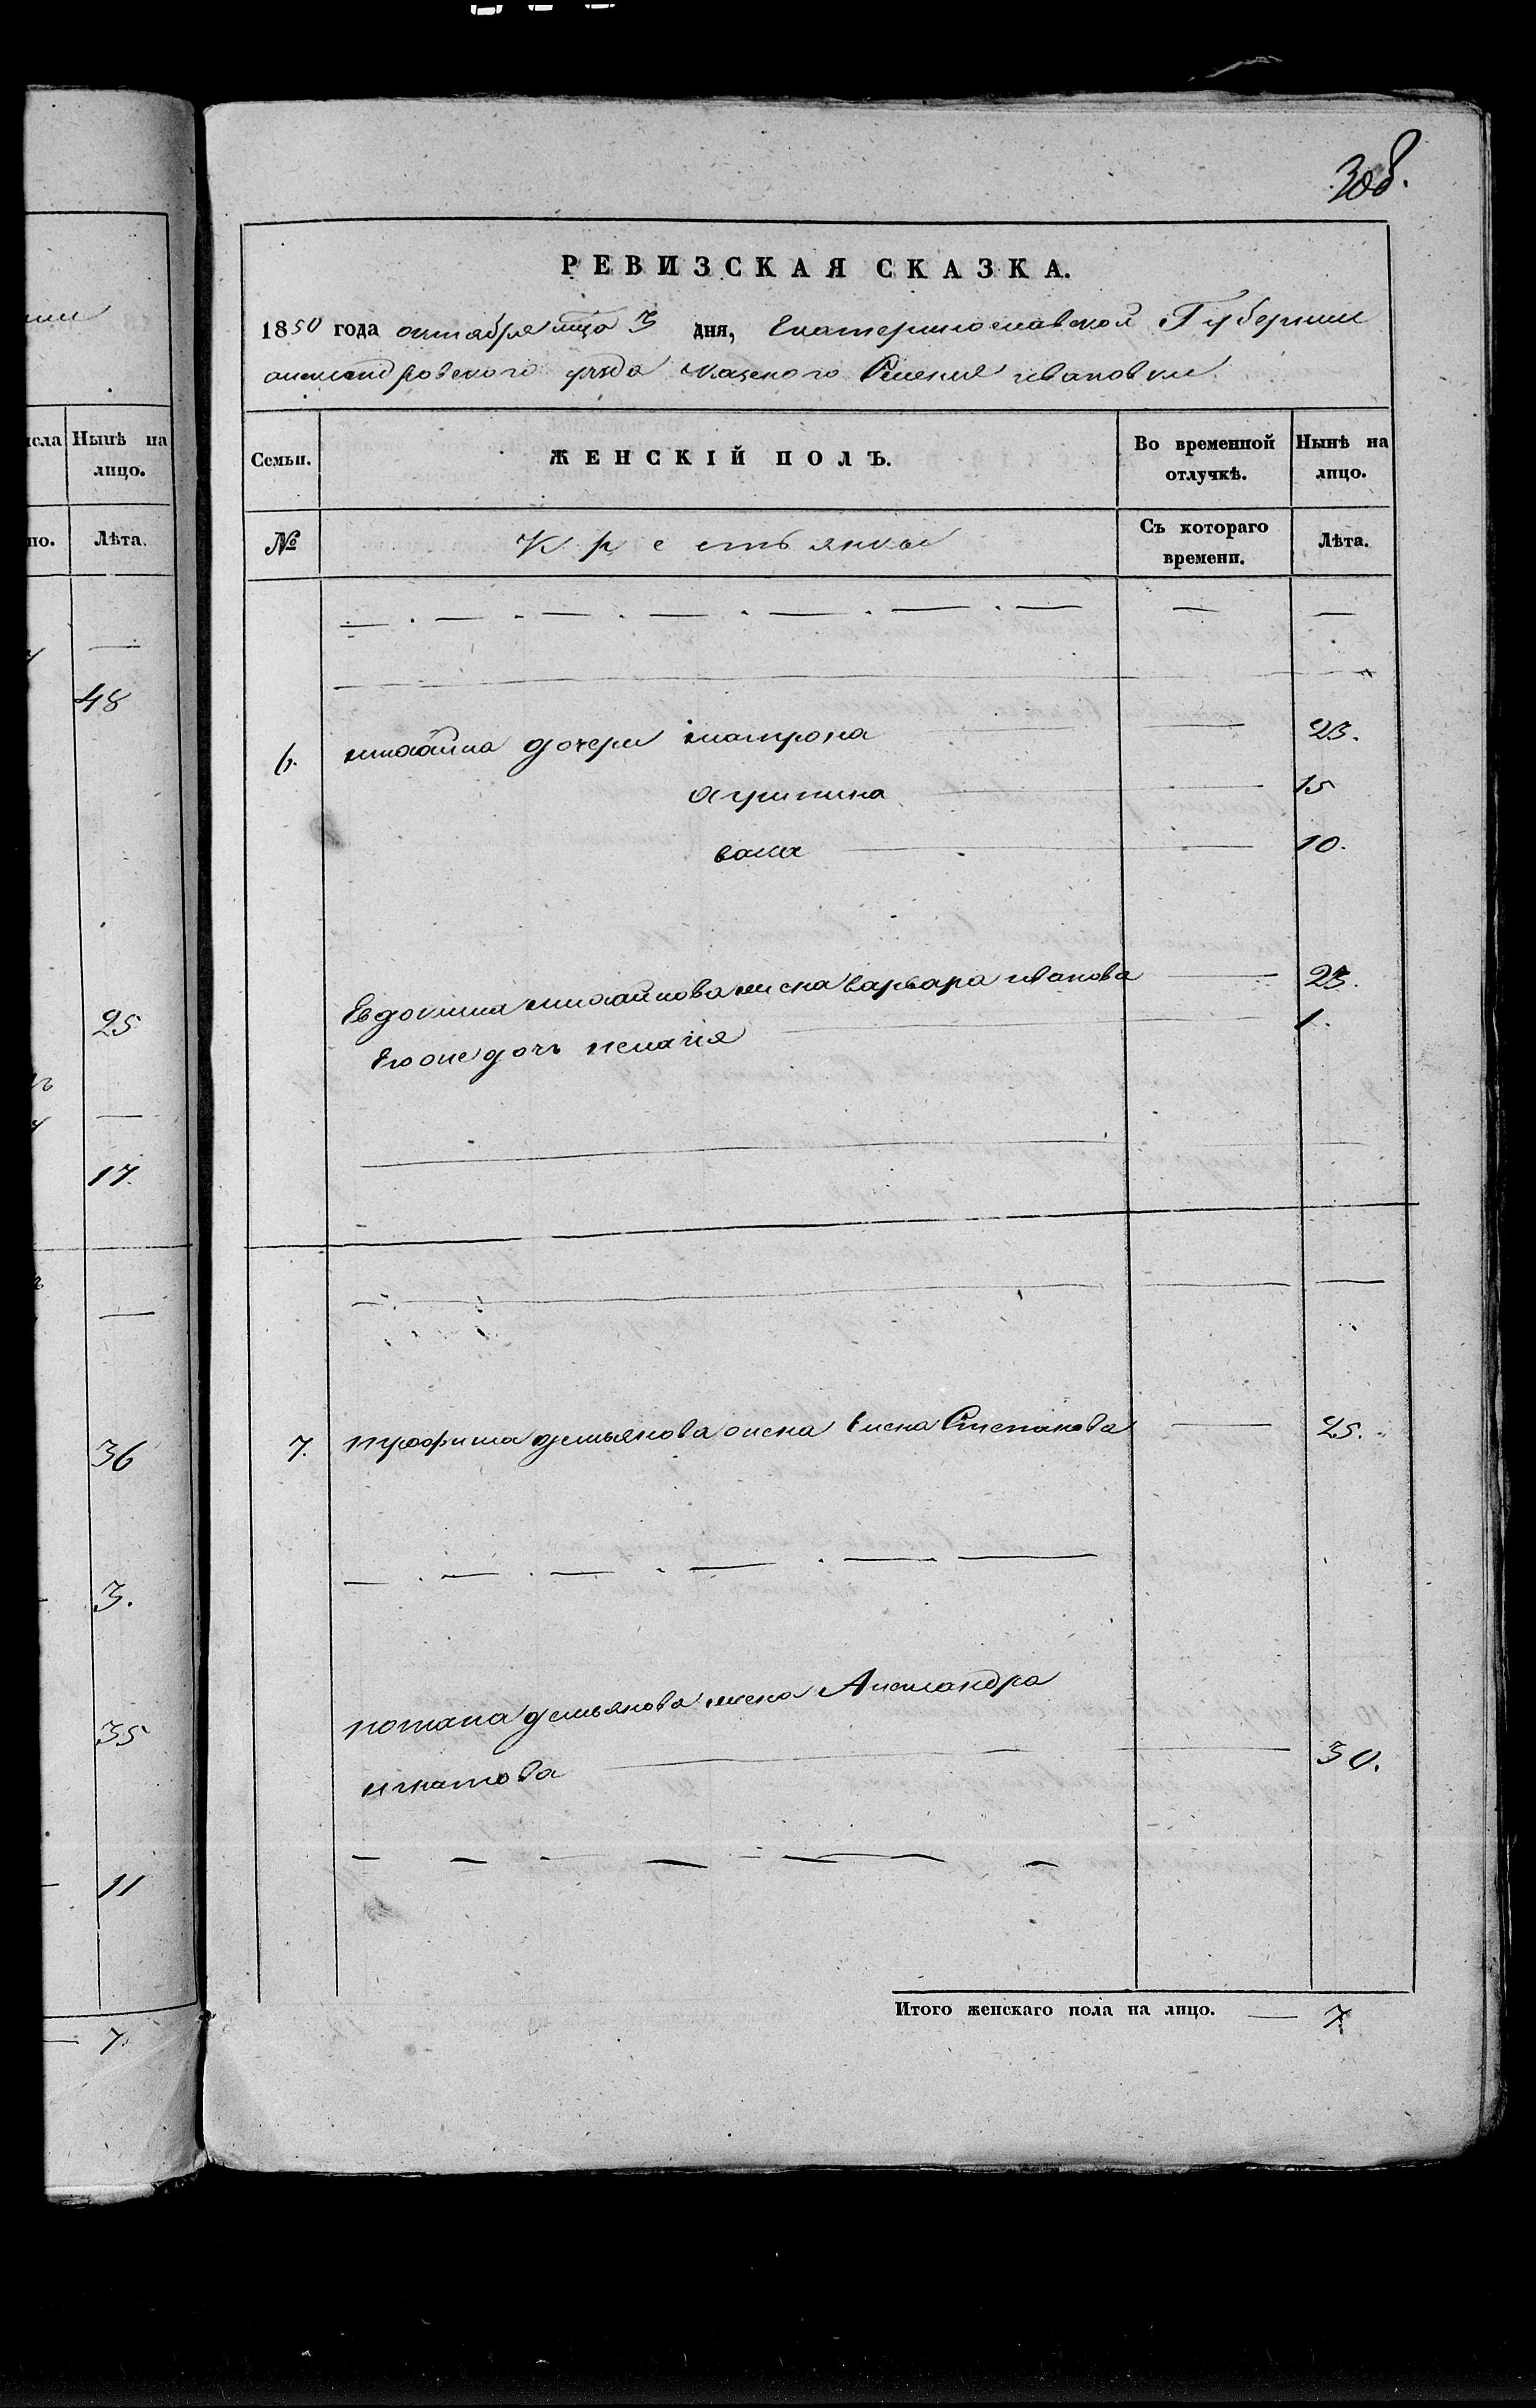 308.
РЕВИЗСКАЯ СКАЗКА.
1850 года октября мца 3 дня, Екатеринославской Губернии
александровского уезда казеного Селения ивановки
Семьи. ЖЕНСКІЙ ПОЛЪ. Во временной отлучкѣ. Нынѣ на лицо.
№ Крестьянки Съ котораго времени. Лѣта.
6. михайла дочери матрона 23.
агрипина 15
10.
Евдокима михайлова жена варвара иванова 23.
Его же дочь пелагия 1.
7. трофима демьянова жена Степанова 25.
потапа демьянова жена Александра
игнатова 30.
Итого женскаго пола на лицо. 7.
исла Нынѣ на лицо.
но. Лѣта.
48
25
17.
36
3.
35
11
7.